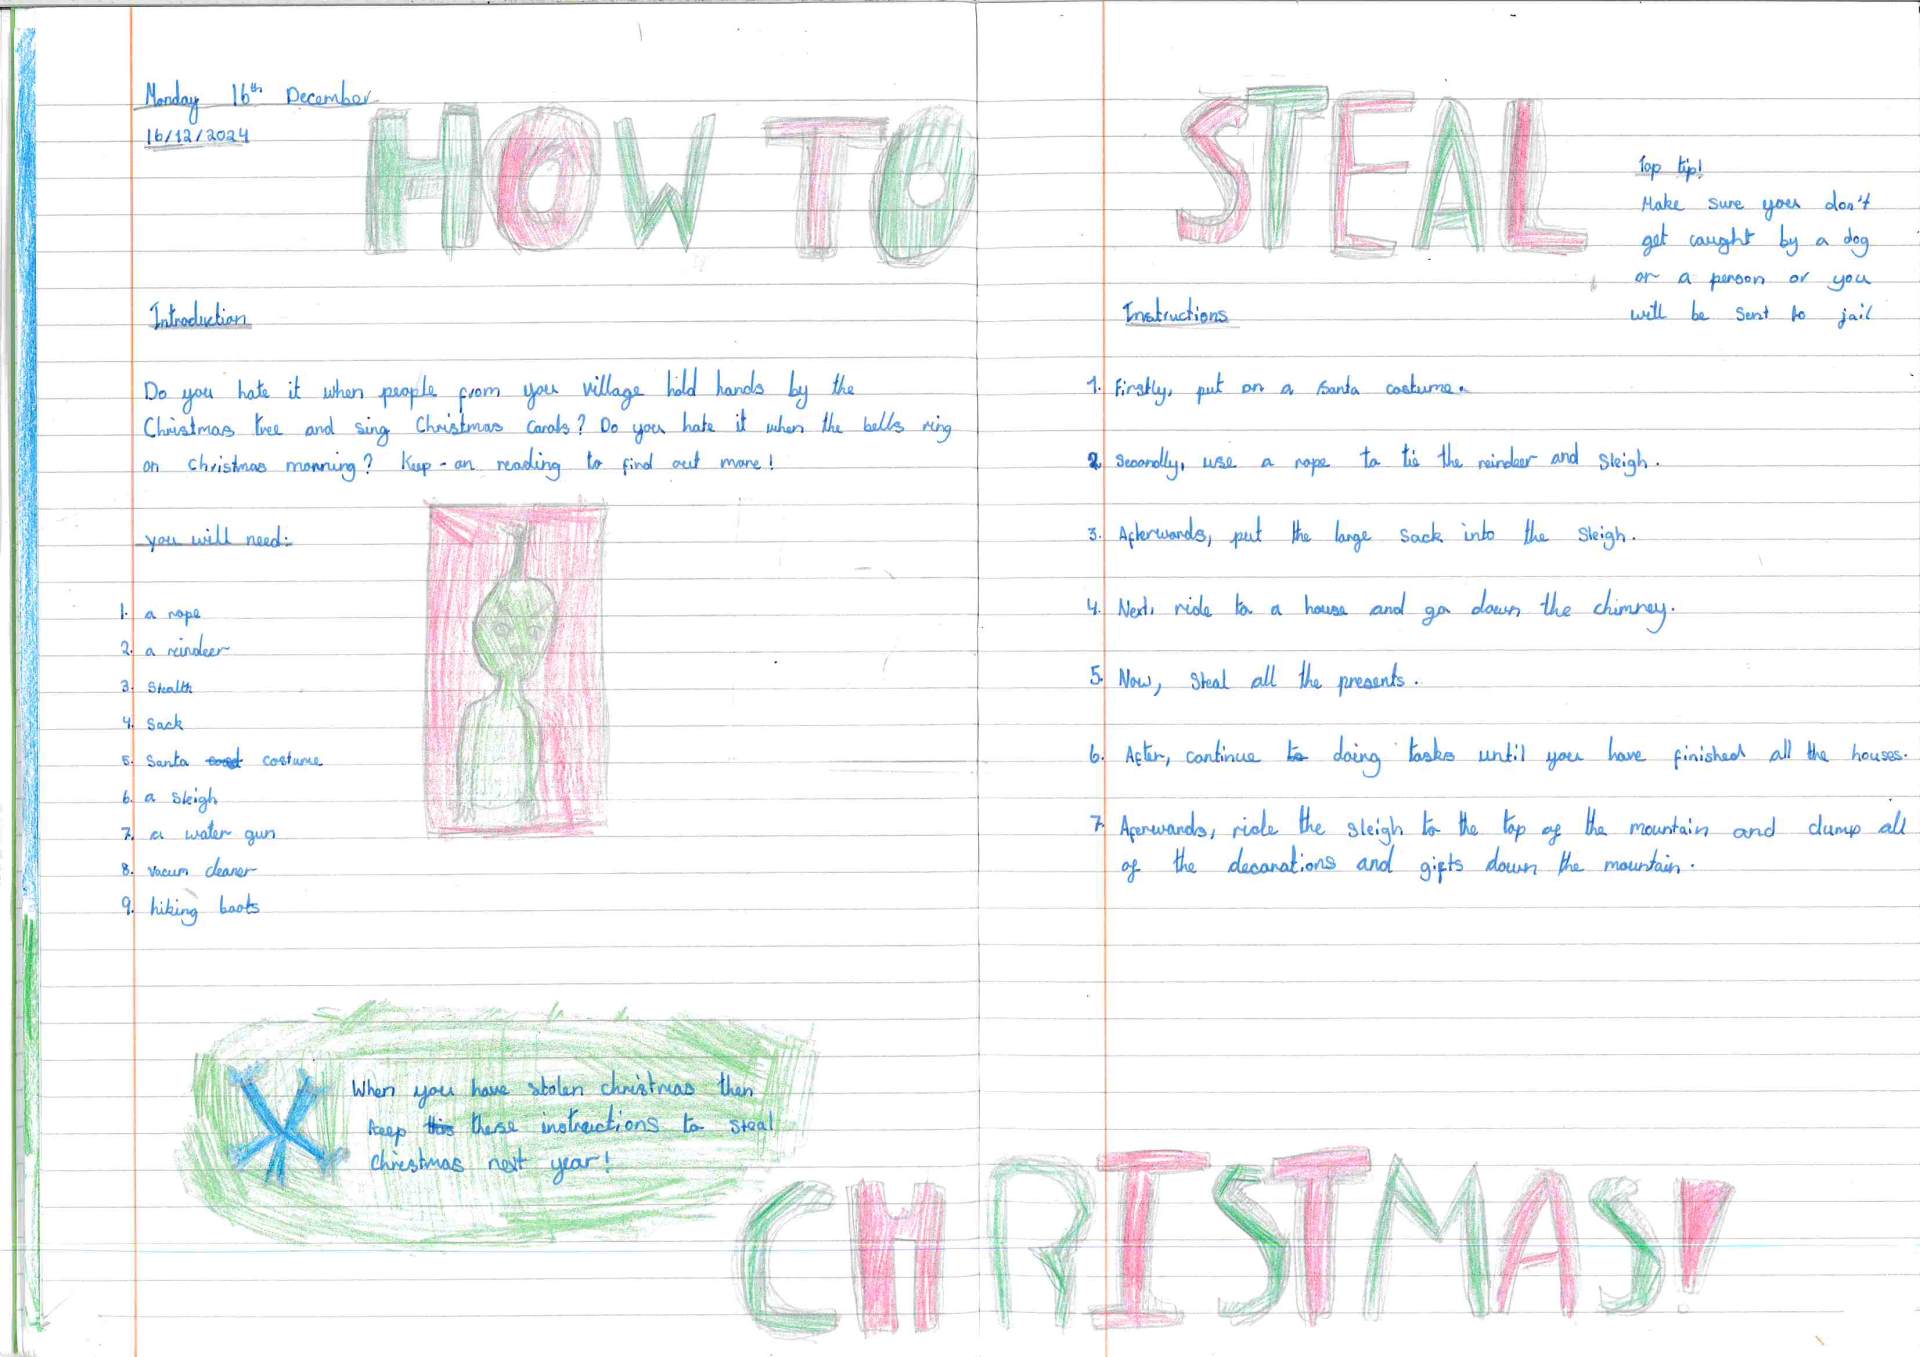 Monday 16th December
16/12/2024
HOW TO STEAL
Introduction
Do you hate it when people from you village hold hands by the
Christmas tree and sing Christmas Carols? Do you hate it when the bells ring
on christmas morning? Keep-on reading to find out more!
you will need:
1. a rope
2. a reindeer
3. Stealth
4. Sack
5. Santa costume
6. a sleigh
7. a water gun
8. vacum cleaner
9. hiking boots
When you have stolen christmas then
keep this these instructions to steal
christmas next year!
Top tip!
Make sure you don't
get caught by a dog
or a person or you
will be sent to jail
Instructions
1. Firstly, put on a Santa costume.
2. Secondly, use a rope to tie the reindeer and sleigh.
3. Afterwards, put the large sack into the sleigh.
4. Next, ride to a house and go down the chimney.
5. Now, steal all the presents.
6. After, continue to doing tasks until you have finished all the houses.
7. Aferwards, ride the sleigh to the top of the mountain and dump all
of the decorations and gifts down the mountain.
CHRISTMAS!